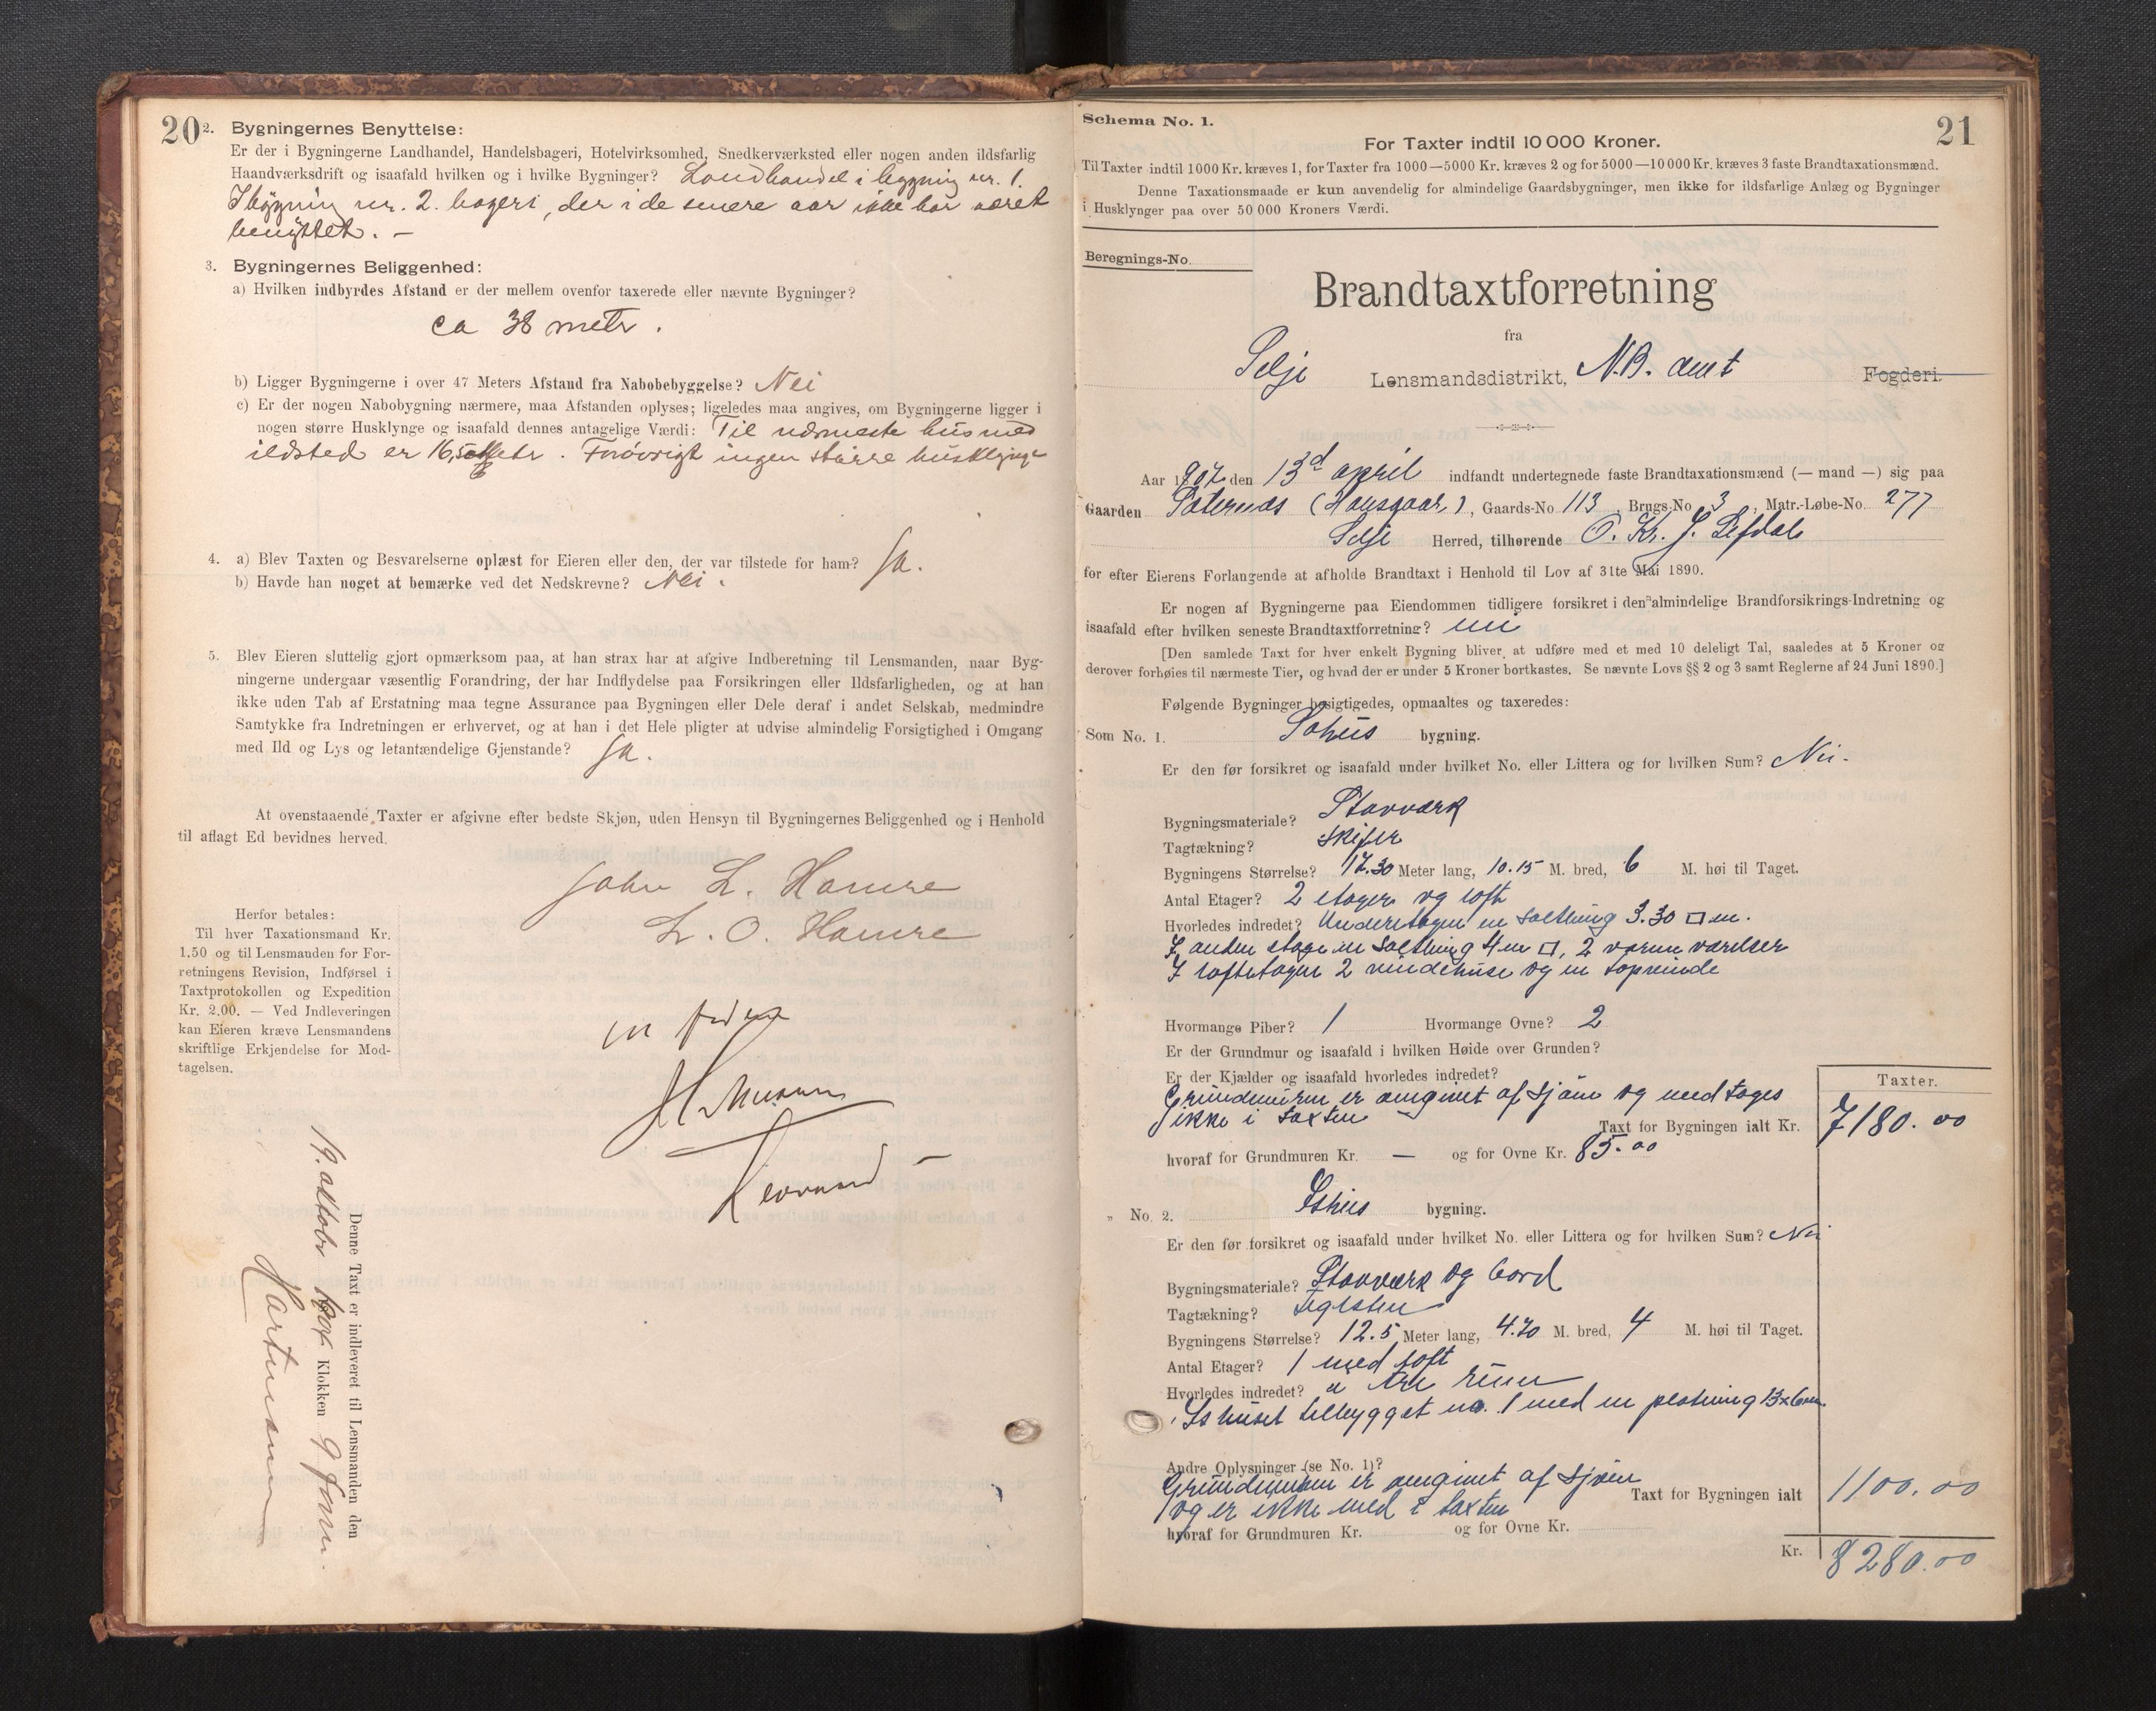 20
2. Bygningernes Benyttelse:
Er der i Bygningerne Landhandel, Handelsbageri, Hotelvirksomhed, Snedkerværksted eller nogen anden ildsfarlig
Haandværksdrift og isaafald hvilken og i hvilke Bygninger? Landhandel i bygning nr. 1.
I bygning nr. 2. bageri, der i de senere aar ikke har været
benyttet. —
3. Bygningernes Beliggenhed:
a) Hvilken indbyrdes Afstand er der mellem ovenfor taxerede eller nævnte Bygninger?
ca 38 metr.
b) Ligger Bygningerne i over 47 Meters Afstand fra Nabobebyggelse? Nei
c) Er der nogen Nabobygning nærmere, maa Afstanden oplyses; ligeledes maa angives, om Bygningerne ligger i
nogen større Husklynge og isaafald dennes antagelige Værdi: Til nærmeste hus med
ildsted er 16,50 Metr. Forøvrigt ingen større husklynge
4. a) Blev Taxten og Besvarelserne oplæst for Eieren eller den, der var tilstede for ham? Ja.
b) Havde han noget at bemærke ved det Nedskrevne? Nei.
5. Blev Eieren sluttelig gjort opmærksom paa, at han strax har at afgive Indberetning til Lensmanden, naar Byg-
ningerne undergaar væsentlig Forandring, der har Indflydelse paa Forsikringen eller Ildsfarligheden, og at han
ikke uden Tab af Erstatning maa tegne Assurance paa Bygningen eller Dele deraf i andet Selskab, medmindre
Samtykke fra Indretningen er erhvervet, og at han i det Hele pligter at udvise almindelig Forsigtighed i Omgang
med Ild og Lys og letantændelige Gjenstande? Ja.
At ovenstaaende Taxter er afgivne efter bedste Skjøn, uden Hensyn til Bygningernes Beliggenhed og i Henhold
til aflagt Ed bevidnes herved.
John L. Hamre
L. O. Hamre
Herfor betales:
Til hver Taxationsmand Kr.
1.50 og til Lensmanden for For-
retningens Revision, Indførsel i
Taxtprotokollen og Expedition
Kr. 2.00. — Ved Indleveringen
kan Eieren kræve Lensmandens
skriftlige Erkjendelse for Mod-
tagelsen.
Denne Taxt er indleveret til Lensmanden den
19. oktobr 1907 Klokken 9 form.
Hartmann
21
Schema No. 1.
For Taxter indtil 10 000 Kroner.
Til Taxter indtil 1000 Kr. kræves 1, for Taxter fra 1000—5000 Kr. kræves 2 og for 5000—10 000 Kr. kræves 3 faste Brandtaxationsmænd.
Denne Taxationsmaade er kun anvendelig for almindelige Gaardsbygninger, men ikke for ildsfarlige Anlæg og Bygninger
i Husklynger paa over 50 000 Kroners Værdi.
Beregnings-No.
Brandtaxtforretning
fra
Selje Lensmandsdistrikt, N.B. amt Fogderi.
Aar 1907 den 13d april indfandt undertegnede faste Brandtaxationsmænd (— mand —) sig paa
Gaarden Sáternes (Hausgaar), Gaards-No 113, Brugs-No 3, Matr.-Løbe-No. 277
Selje Herred, tilhørende O. Kr. J. Lefdal
for efter Eierens Forlangende at afholde Brandtaxt i Henhold til Lov af 31te Mai 1890.
Er nogen af Bygningerne paa Eiendommen tidligere forsikret i den almindelige Brandforsikrings-Indretning og
isaafald efter hvilken seneste Brandtaxtforretning? nei
[Den samlede Taxt for hver enkelt Bygning bliver at udføre med et med 10 deleligt Tal, saaledes at 5 Kroner og
derover forhøies til nærmeste Tier, og hvad der er under 5 Kroner bortkastes. Se nævnte Lovs §§ 2 og 3 samt Reglerne af 24 Juni 1890.]
Følgende Bygninger besigtigedes, opmaaltes og taxeredes:
Som No. 1. Søhus bygning.
Er den før forsikret og isaafald under hvilket No. eller Littera og for hvilken Sum? Nei.
Bygningsmateriale? Stavværk
Tagtækning? Skifer
Bygningens Størrelse? 17.30 Meter lang, 10.15 M. bred, 6 M. høi til Taget.
Antal Etager? 2 etager og loft
Hvorledes indredet? Underetagen en salthing 3.30 □ m.
I anden etage en Salthing 4 m □, 2 varme værelser
I loftetagen 2 vindehuse og en topvinde
Hvormange Piber? 1 Hvormange Ovne? 2
Er der Grundmur og isaafald i hvilken Høide over Grunden?
Er der Kjælder og isaafald hvorledes indredet?
Grundmuren er omgivet af sjøen og medtages
ikke i taxten
Taxter.
Taxt for Bygningen ialt Kr. 7180.00
hvoraf for Grundmuren Kr. — og for Ovne Kr. 85.00
„ No. 2. Ishus bygning.
Er den før forsikret og isaafald under hvilket No. eller Littera og for hvilken Sum? Nei
Bygningsmateriale? Stavværk og bord
Tagtækning? Teglsten
Bygningens Størrelse? 12.5 Meter lang, 4.70 M. bred, 4 M. høi til Taget.
Antal Etager? 1 med loft
Hvorledes indredet? a tre rum
Ishuset tilbygget no. 1 med en platning 13x6 m.
Andre Oplysninger (se No. 1)?
Grundmuren er omgivet af sjøen
og er ikke med i taxten
Taxt for Bygningen ialt 1100.00
hvoraf for Grundmuren Kr. og for Ovne Kr.
Kr. 8280.00